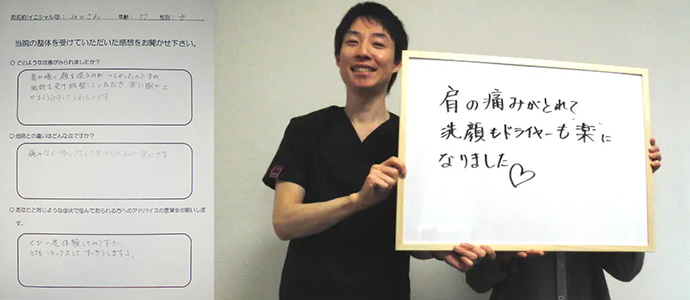 お名前(イニシャル可): みっこさん 年齢: 性別: 女
当院の整体を受けていただいた感想をお聞かせ下さい。
○どのような改善がみられましたか?
肩が痛く顔を洗うのが つらかったのですが
施術を受け 調整していただき 楽に腕が上
がるようになってうれしいです
○他院との違いはどんな点ですか?
痛みなく リラックスして受けられる
○あなたと同じような症状で悩んでおられる方へのアドバイスの言葉をお願いしま
す。
ぜひ一度体験してみて下さい
とても リラックスして すっきりしますよ。
肩の痛みがとれて
洗顔もドライヤーも"楽"に
なりました♡